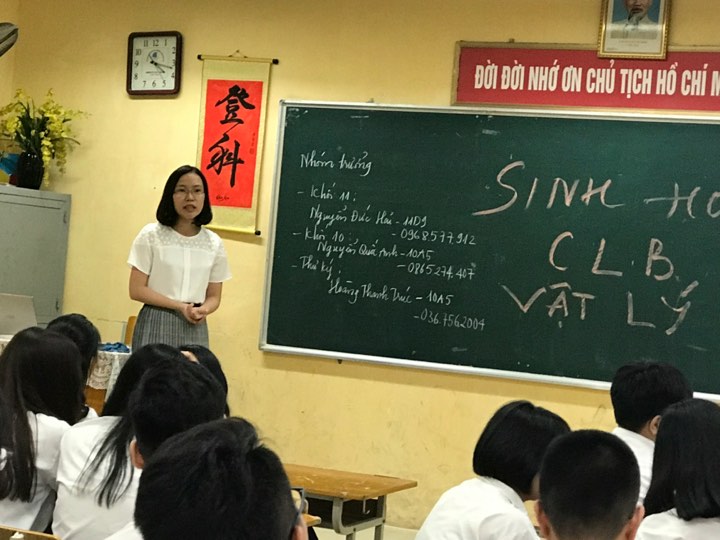 ĐỜI ĐỜI NHỚ ƠN CHỦ TỊCH HỒ CHÍ M
登科
Nhóm trưởng
- Khối 11:
Nguyễn Đức Hải - 11D9
- 0968.577.912
- Khối 10:
Nguyễn Quế Anh - 10A5
- 0865.274.407
- Thư ký:
Hoàng Thanh Trúc - 10A5
- 036.7562004
SINH HO
C.L.B
VẬT LÝ